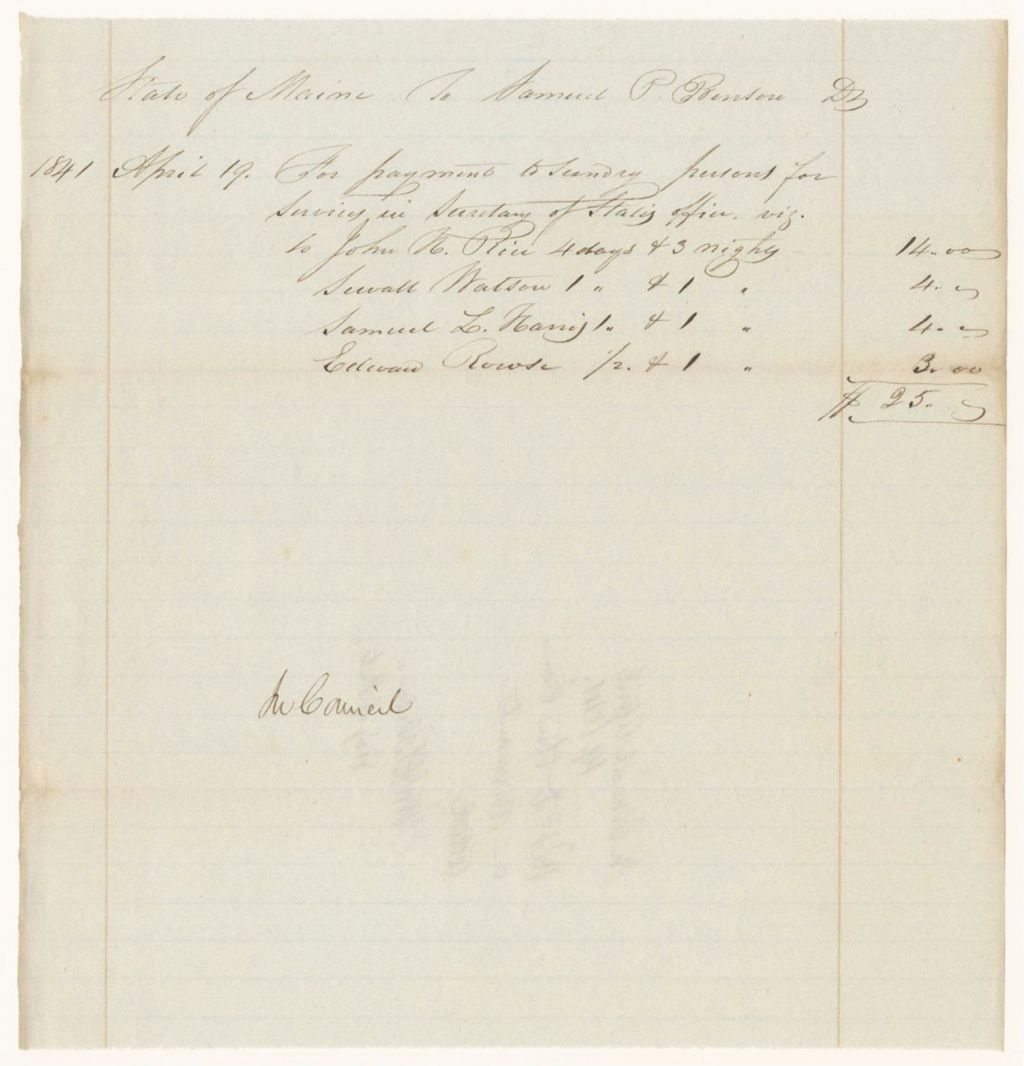 State of Maine To Samuel P. Benson Dr
1841 April 19. For payment to sundry persons for
services in Secretary of State's office. viz.
to John H. Rice 4 days & 3 nights 14.00
Sewall Watson 1 " & 1 " 4. "
Samuel L. Harris 1 " & 1 " 4. "
Edward Rowse 1/2. & 1 " 3.00
$ 25. "
In Council